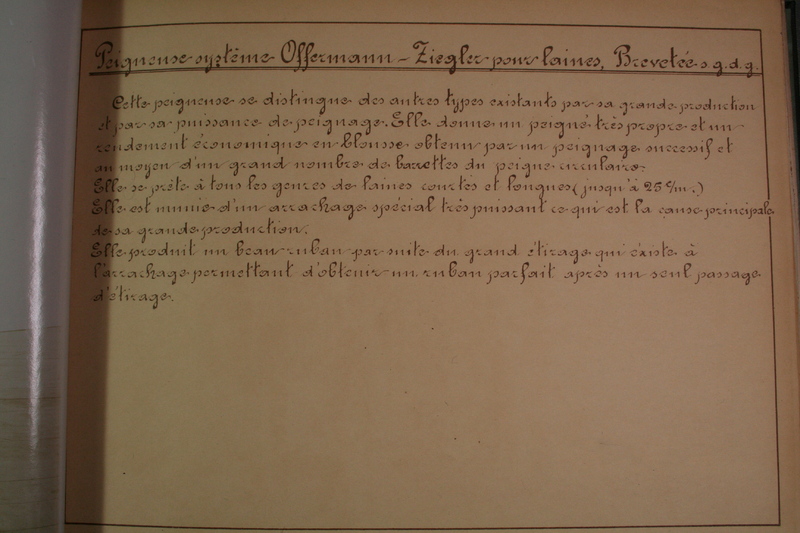 Peigneuse système Offermann-Ziegler pour laines, Brevetée s.g.d.g.
Cette peigneuse se distingue des autres types existants par sa grande production
et par sa puissance de peignage. Elle donne un peigné très propre et un
rendement économique en blousse obtenu par un peignage successif et
au moyen d'un grand nombre de barrettes du peigne circulaire.
Elle se prête à tous les genres de laines courtes et longues (jusqu'à 25 c/m.)
Elle est munie d'un arrachage spécial très puissant ce qui est la cause principale
de sa grande production.
Elle produit un beau ruban par suite du grand étirage qui existe à
l'arrachage permettant d'obtenir un ruban parfait après un seul passage
d'étirage.